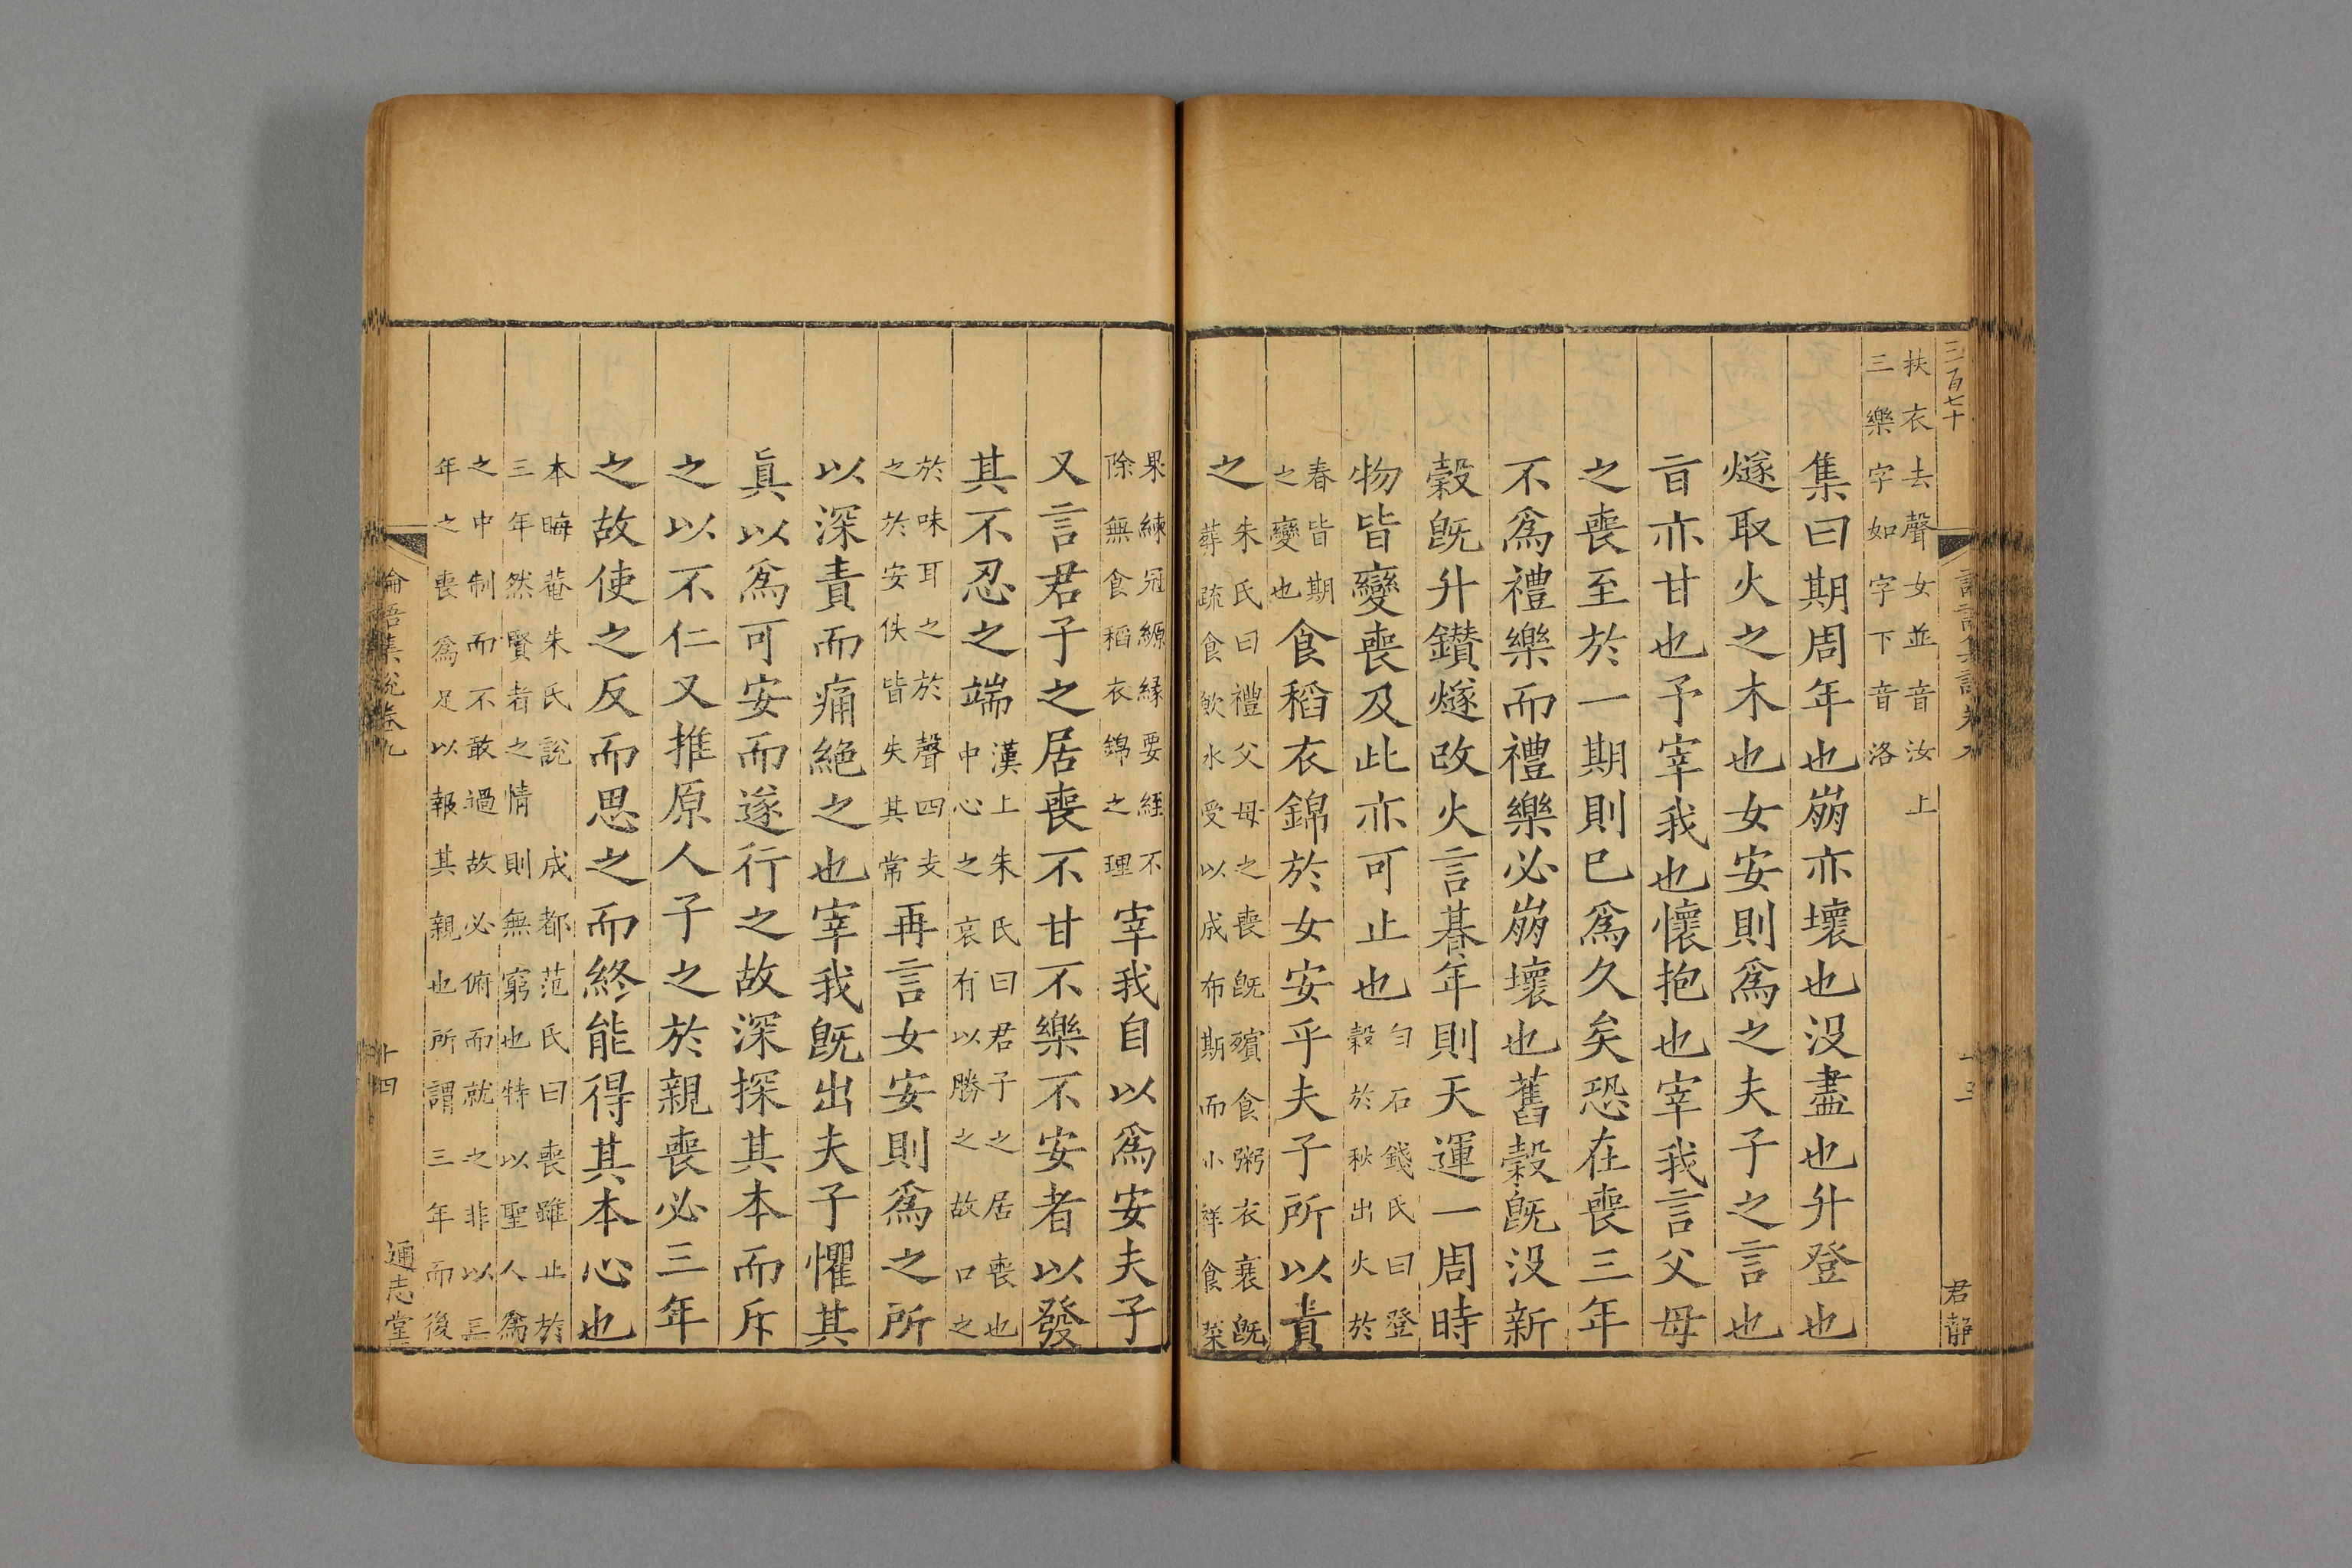 三百七十
君靜
扶衣去聲女並音汝上
三樂字如字下音洛
集曰期周年也崩亦壞也没盡也升登也
燧取火之木也女安則爲之夫子之言也
㫖亦甘也予宰我也懷抱也宰我言父母
之喪至於一期則巳爲久矣恐在喪三年
不爲禮樂而禮樂必崩壞也舊穀旣没新
穀旣升鑽燧改火言朞年則天運一周時
物皆變喪及此亦可止也
勻石錢氏曰登
穀於秋出火於
春皆期
之變也
食稻衣錦於女安乎夫子所以責
之
朱氏曰禮父母之喪旣殯食粥衣衰旣
葬疏食飲水受以成布斯而小祥食菜
果練冠縓緣要絰不
除無食稻衣錦之理
宰我自以爲安夫子
又言君子之居喪不甘不樂不安者以發
其不忍之端
漢上朱氏曰君子之居喪也
中心之哀有以勝之故口之
於味耳之於聲四支
之於安佚皆失其常
再言女安則爲之所
以深責而痛絶之也宰我旣出夫子懼其
眞以爲可安而遂行之故深探其本而斥
之以不仁又推原人子之於親喪必三年
之故使之反而思之而終能得其本心也
本晦菴朱氏說 成都范氏曰喪雖止於
三年然賢者之情則無窮也特以聖人爲
之中制而不敢過故必俯而就之非以三
年之喪爲足以報其親也所謂三年而後
論語集說卷九
十四
通志堂